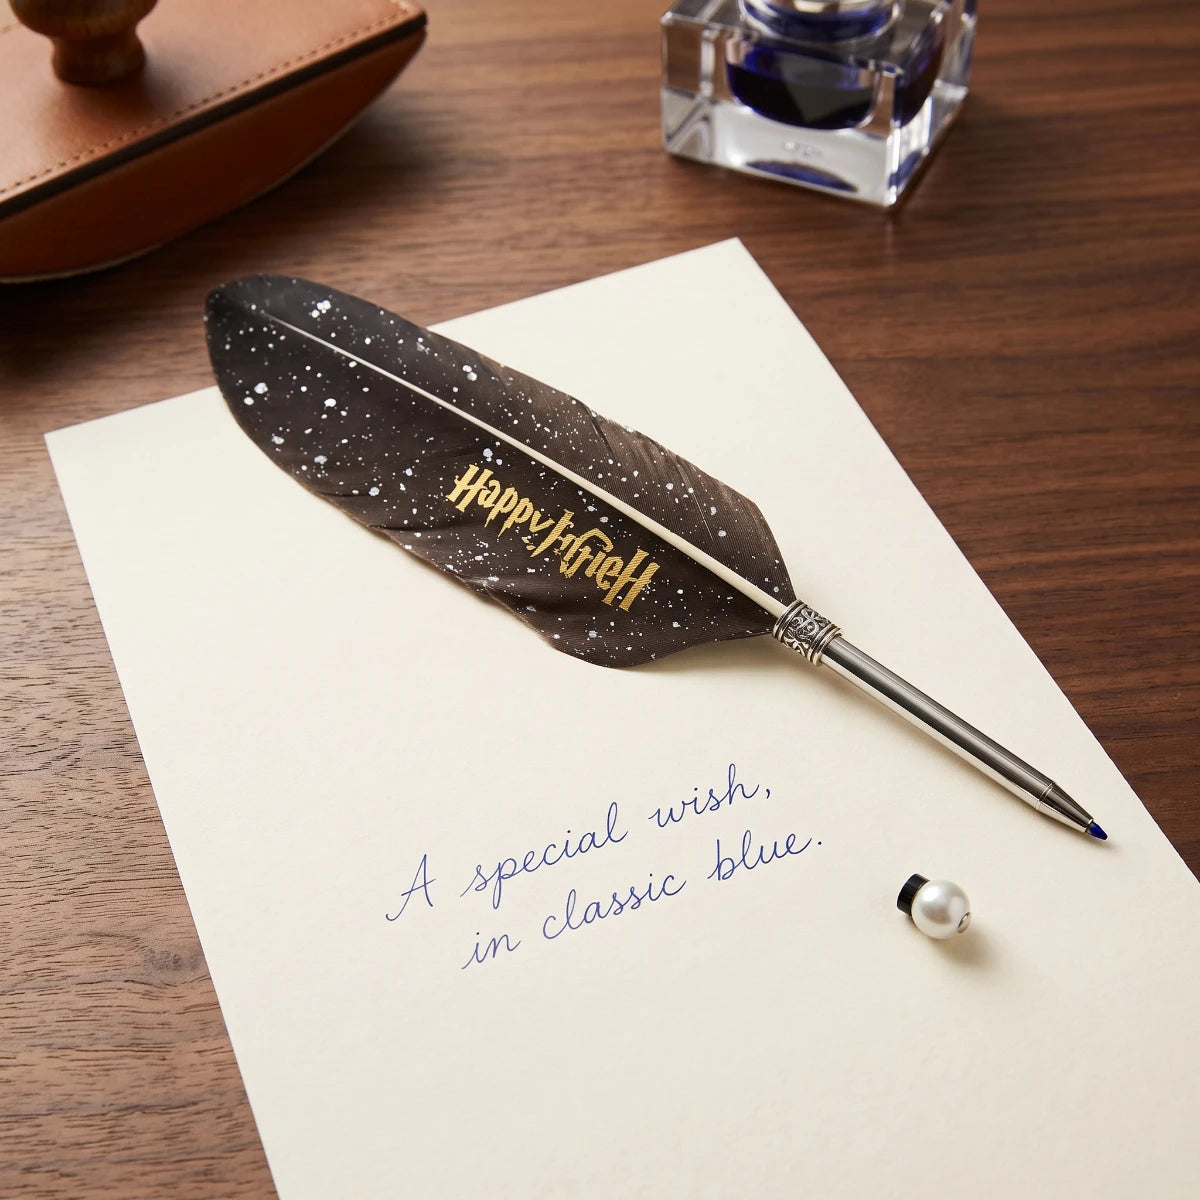 Happy
A special wish,
in classic blue.